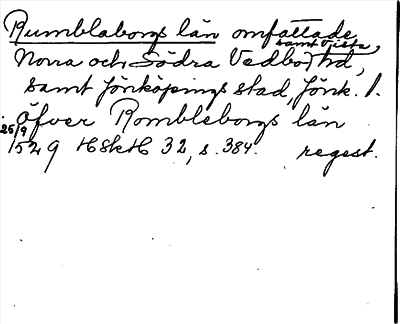 Rumblaborgs län omfattade
samt Vista,
Norra och Södra Vedbo hd,
samt Jönköpings stad, Jönk. l.
Öfver Rombleborgs län
25/9
1529 HSkH 32, s. 384. regest.